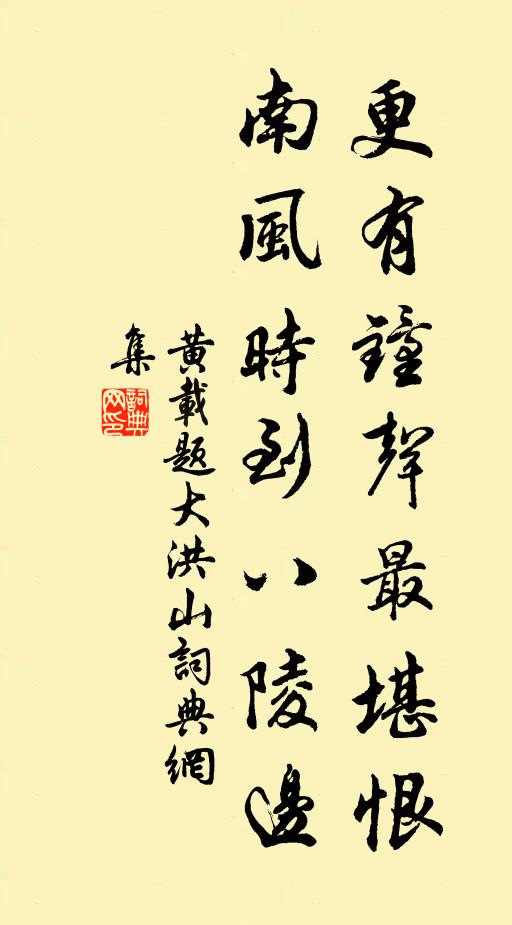 更有鐘聲最堪恨
南風時到八陵邊
黃載題大洪山詞典網
集
詞典
网印